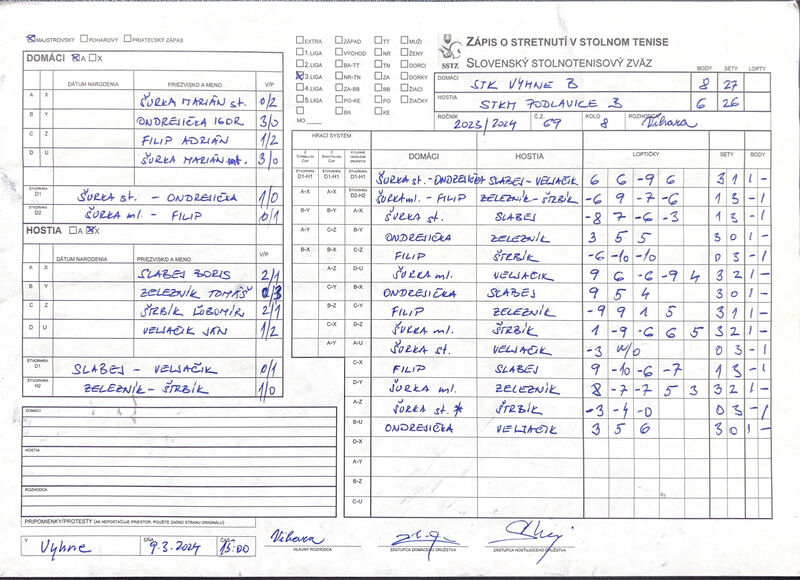 MAJSTROVSKÝ POHÁROVÝ PRIATEĽSKÝ ZÁPAS
DOMÁCI A X
DÁTUM NARODENIA PRIEZVISKO A MENO V/P
A X ŠURKA MARIÁN st. 0/2
B Y ONDREJIČKA IGOR 3/0
C Z FILIP ADRIÁN 1/2
D U ŠURKA MARIÁN ml. 3/0
ŠTVORHRA D1 ŠURKA st. - ONDREJIČKA 1/0
ŠTVORHRA D2 ŠURKA ml. - FILIP 0/1
HOSTIA A X
DÁTUM NARODENIA PRIEZVISKO A MENO V/P
A X SLABEJ BORIS 2/1
B Y ZELEZNÍK TOMÁŠ 0/3
C Z ŠTRBÍK ĽUBOMÍR 2/1
D U VELJAČIK JÁN 1/2
ŠTVORHRA D1 SLABEJ - VELJAČIK 0/1
ŠTVORHRA H2 ZELEZNÍK - ŠTRBÍK 1/0
DOMÁCI
HOSTIA
ROZHODCA
PRIPOMIENKY/PROTESTY (AK NEPOSTAČUJE PRIESTOR, POUŽITE ZADNÚ STRANU ORIGINÁLU)
V Vyhne DŇA 9.3.2024 ČAS 15:00
EXTRA ZÁPAD TT MUŽI
1.LIGA VÝCHOD NR ŽENY
2.LIGA BA-TT TN DORCI
3.LIGA NR-TN ZA DORKY
4.LIGA ZA-BB BB ŽIACI
5.LIGA PO-KE PO ŽIAČKY
BA KE
MO
SSTZ
ZÁPIS O STRETNUTÍ V STOLNOM TENISE
SLOVENSKÝ STOLNOTENISOVÝ ZVÄZ
BODY SETY LOPTY
DOMÁCI STK VYHNE B 8 27
HOSTIA STKM PODLAVICE B 6 26
ROČNÍK 2023/2024 Č.Z. 69 KOLO 8 ROZHODCA Vihara
HRACÍ SYSTÉM
DOMÁCI HOSTIA LOPTIČKY SETY BODY
ŠTVORHRA D1-H1 ŠTVORHRA D1-H1 ŠURKA st. - ONDREJIČKA SLABEJ - VELJAČIK 6 6 -9 6 3 1 1 -
A-X A-X ŠTVORHRA D2-H2 ŠURKA ml. - FILIP ZELEZNÍK - ŠTRBÍK -6 9 -7 -6 1 3 - 1
B-Y B-Y A-X ŠURKA st. SLABEJ -8 7 -6 -3 1 3 - 1
A-Y C-Z B-Y ONDREJIČKA ZELEZNÍK 3 5 5 3 0 1 -
B-X B-X C-Z FILIP ŠTRBÍK -6 -10 -10 0 3 - 1
A-Z D-U ŠURKA ml. VELJAČIK 9 6 -6 -9 4 3 2 1 -
C-Y B-X ONDREJIČKA SLABEJ 9 5 4 3 0 1 -
B-Z C-Y FILIP ZELEZNÍK -9 9 1 5 3 1 1 -
C-X D-Z ŠURKA ml. ŠTRBÍK 1 -9 -6 6 5 3 2 1 -
A-Y A-U ŠURKA st. VELJAČIK -3 W/O 0 3 - 1
C-X FILIP SLABEJ 9 -10 -6 -7 1 3 - 1
D-Y ŠURKA ml. ZELEZNÍK 8 -7 -7 5 3 3 2 1 -
A-Z ŠURKA st. ŠTRBÍK -3 -4 -0 0 3 - 1
B-U ONDREJIČKA VELJAČIK 3 5 6 3 0 1 -
D-X
A-Y
B-Z
C-U
Vihara
HLAVNÝ ROZHODCA ZÁSTUPCA DOMÁCEHO DRUŽSTVA ZÁSTUPCA HOSŤUJÚCEHO DRUŽSTVA